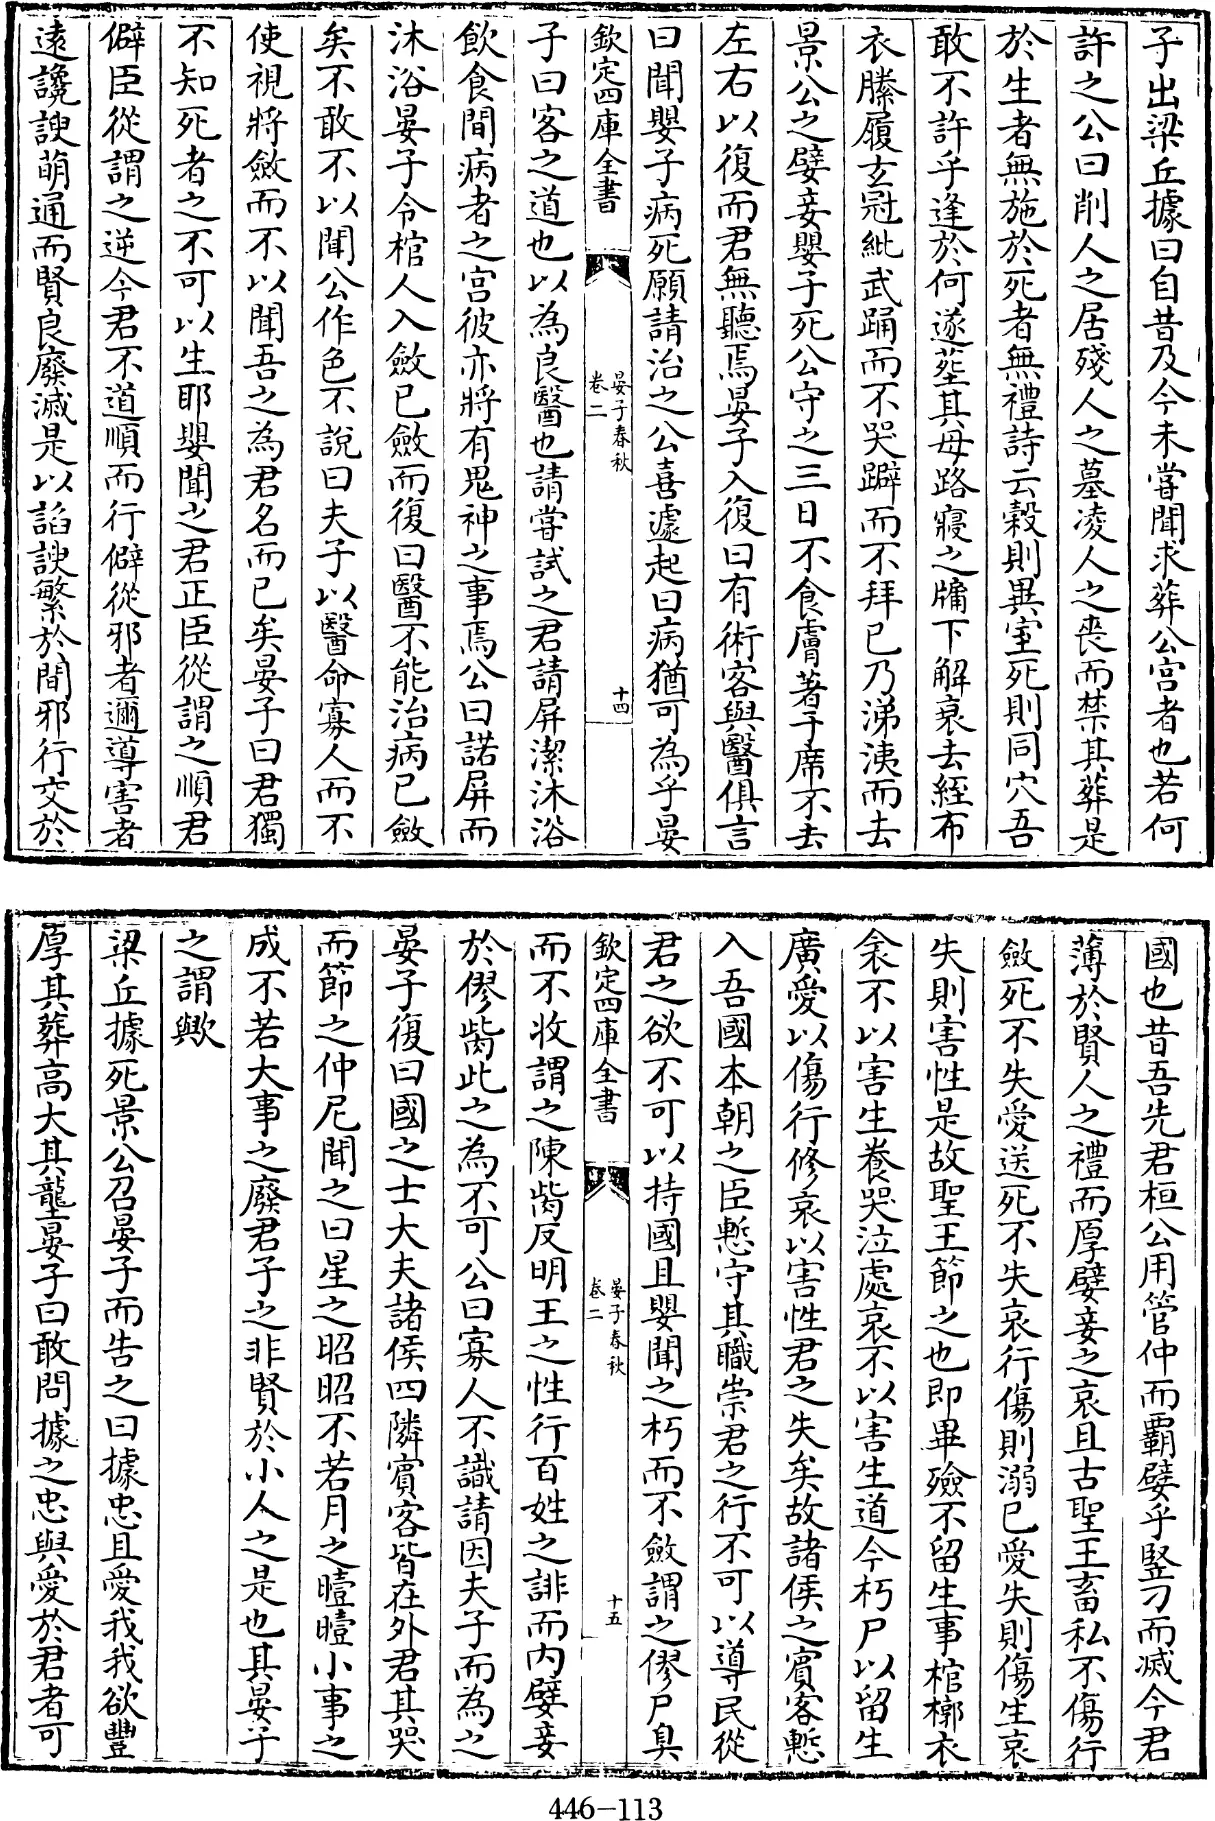 子出梁丘據曰自昔及今未嘗聞求葬公宫者也若何
許之公曰削人之居殘人之墓凌人之喪而禁其葬是
於生者無施於死者無禮詩云穀則異室死則同穴吾
敢不許乎逢於何遂塟其母路寢之牖下解衰去絰布
衣縢履玄冠紕武踊而不哭躃而不拜已乃涕洟而去
景公之嬖妾嬰子死公守之三日不食膚著于席不去
左右以復而君無聽焉晏子入復曰有術客與醫俱言
曰聞嬰子病死願請治之公喜遽起曰病猶可為乎晏
欽定四庫全書
晏子春秋
卷二
十四
子曰客之道也以為良醫也請嘗試之君請屏潔沐浴
飲食間病者之宫彼亦將有鬼神之事焉公曰諾屏而
沐浴晏子令棺人入斂已斂而復曰醫不能治病已斂
矣不敢不以聞公作色不說曰夫子以醫命寡人而不
使視將斂而不以聞吾之為君名而已矣晏子曰君獨
不知死者之不可以生耶嬰聞之君正臣從謂之順君
僻臣從謂之逆今君不道順而行僻從邪者邇導害者
遠讒諛萌通而賢良廢滅是以諂諛繁於間邪行交於
國也昔吾先君桓公用管仲而霸嬖乎竪刁而滅今君
薄於賢人之禮而厚嬖妾之哀且古聖王畜私不傷行
斂死不失愛送死不失哀行傷則溺已愛失則傷生哀
失則害性是故聖王節之也即畢殮不留生事棺槨衣
衾不以害生養哭泣處哀不以害生道今朽尸以留生
廣愛以傷行修哀以害性君之失矣故諸侯之賓客慙
入吾國本朝之臣慙守其職崇君之行不可以導民從
君之欲不可以持國且嬰聞之朽而不斂謂之僇尸臭
欽定四庫全書
晏子春秋
卷二
十五
而不收謂之陳胔反明王之性行百姓之誹而内嬖妾
於僇胔此之為不可公曰寡人不識請因夫子而為之
晏子復曰國之士大夫諸侯四隣賓客皆在外君其哭
而節之仲尼聞之曰星之昭昭不若月之曀曀小事之
成不若大事之廢君子之非賢於小人之是也其晏子
之謂歟
梁丘據死景公召晏子而告之曰據忠且愛我我欲豐
厚其葬高大其壟晏子曰敢問據之忠與愛於君者可
446-113